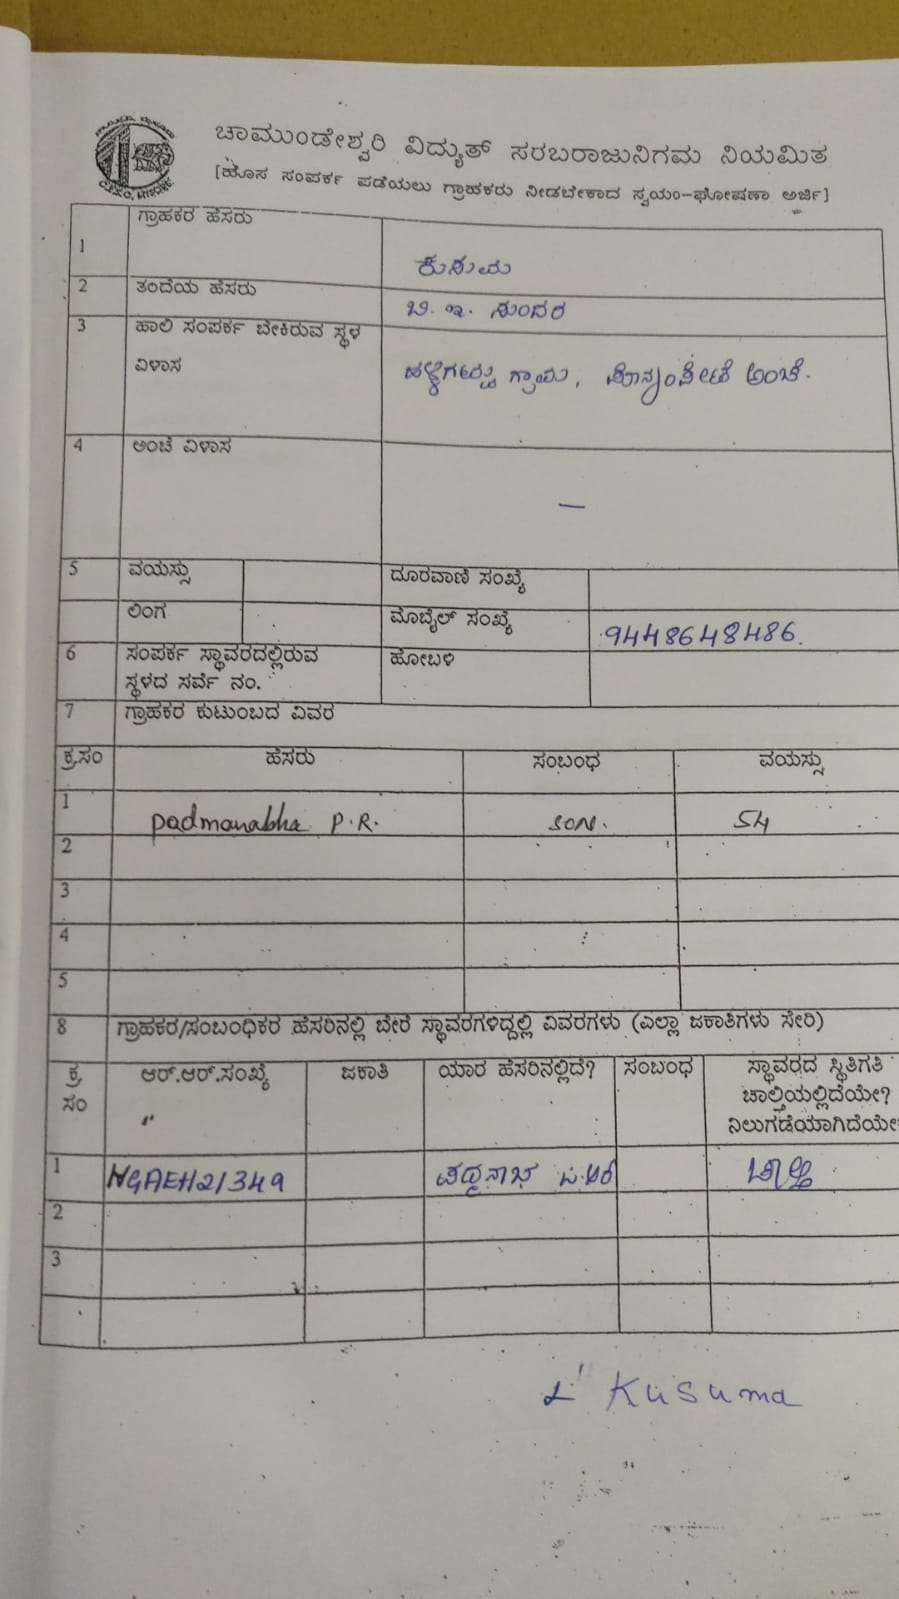 ಚಾಮುಂಡೇಶ್ವರಿ ವಿದ್ಯುತ್ ಸರಬರಾಜುನಿಗಮ ನಿಯಮಿತ
[ಹೊಸ ಸಂಪರ್ಕ ಪಡೆಯಲು ಗ್ರಾಹಕರು ನೀಡಬೇಕಾದ ಸ್ವಯಂ-ಘೋಷಣಾ ಅರ್ಜಿ]
1 ಗ್ರಾಹಕರ ಹೆಸರು ಕುಸುಮ
2 ತಂದೆಯ ಹೆಸರು ಬಿ. ಇ. ಸುಂದರ
3 ಹಾಲಿ ಸಂಪರ್ಕ ಬೇಕಿರುವ ಸ್ಥಳ
ವಿಳಾಸ ಗ್ರಾಮ, ಅಂಚೆ.
4 ಅಂಚೆ ವಿಳಾಸ —
5 ವಯಸ್ಸು ದೂರವಾಣಿ ಸಂಖ್ಯೆ
ಲಿಂಗ ಮೊಬೈಲ್ ಸಂಖ್ಯೆ 9448648486.
6 ಸಂಪರ್ಕ ಸ್ಥಾವರದಲ್ಲಿರುವ ಹೋಬಳಿ
ಸ್ಥಳದ ಸರ್ವೆ ನಂ.
7 ಗ್ರಾಹಕರ ಕುಟುಂಬದ ವಿವರ
ಕ್ರ.ಸಂ ಹೆಸರು ಸಂಬಂಧ ವಯಸ್ಸು
1 Padmanabha P.R. SON. 54
2
3
4
5
8 ಗ್ರಾಹಕರ/ಸಂಬಂಧಿಕರ ಹೆಸರಿನಲ್ಲಿ ಬೇರೆ ಸ್ಥಾವರಗಳಿದ್ದಲ್ಲಿ ವಿವರಗಳು (ಎಲ್ಲಾ ಜಕಾತಿಗಳು ಸೇರಿ)
ಕ್ರ ಆರ್.ಆರ್.ಸಂಖ್ಯೆ ಜಕಾತಿ ಯಾರ ಹೆಸರಿನಲ್ಲಿದೆ? ಸಂಬಂಧ ಸ್ಥಾವರದ ಸ್ಥಿತಿಗತಿ
ಸಂ ಚಾಲ್ತಿಯಲ್ಲಿದೆಯೇ?
ನಿಲುಗಡೆಯಾಗಿದೆಯೇ?
1 NGAEH21349 ಪದ್ಮನಾಭ ಪಿ.ಆರ್ ಚಾಲ್ತಿ
2
3
Kusuma